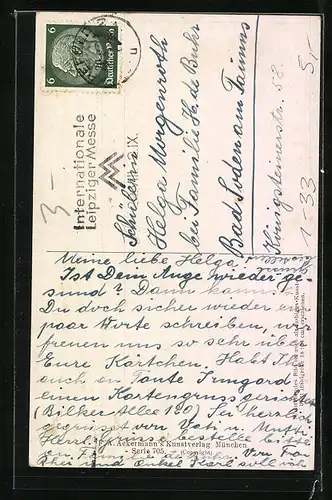 6 6
Deutsches Reich
Internationale
Leipziger Messe
3-
Schülerin
Helga Morgenroth
bei Familie H. de Buhr
Bad Soden am Taunus
Königsteinerstr. 58.
5,-
1-33
Meine liebe Helga,
Ist Dein Auge wieder ge-
sund? Dann kannst
Du doch sicher wieder ein
paar Worte schreiben, wir
freuen uns so sehr über
Eure Kärtchen. Habt Ihr
auch an Tante Irmgard
einen Kartengruss gerichtet
(Bilker Allee 120) Sei herzlich
gegrüsst von Vati u. Mutti
Herzl. Grüsse bestelle bitte
F. A. Ackermann's Kunstverlag München
Serie 705
(Copyright)
an Von Frau
und Onkel Karl soll ich